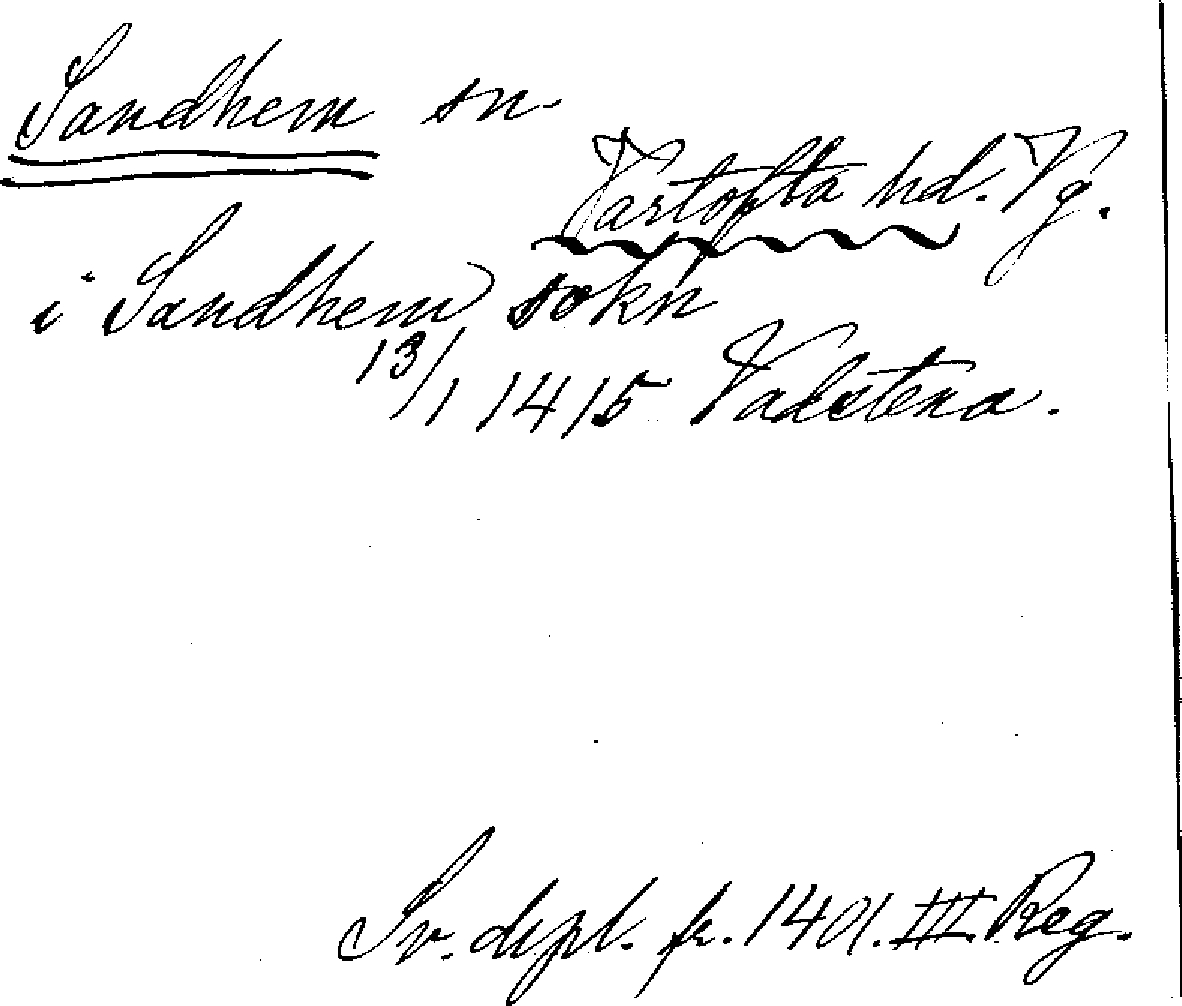 Sandhem sn
Vartofta hd. Vg.
i Sandhem sokn
13/1 1415 Vadstena.
Sv. dipl. fr. 1401. III. Reg.